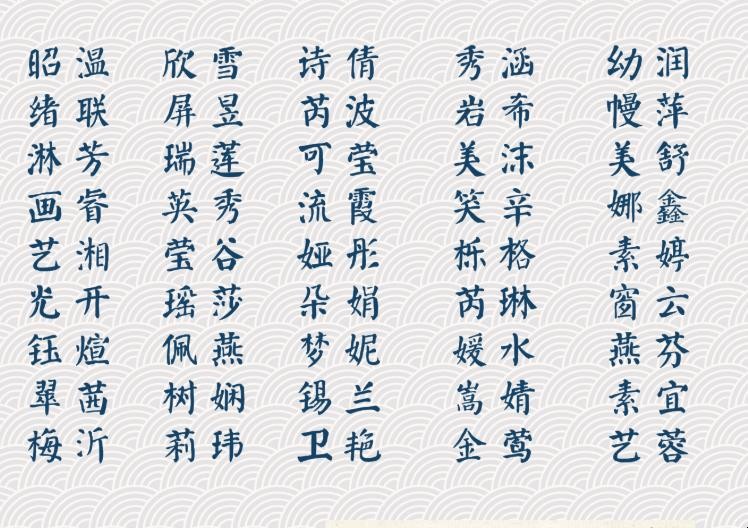 昭温 欣雪 诗倩 秀涵 幼润
绪联 屏昱 芮波 岩希 幔萍
淋芳 瑞莲 可莹 美沫 美舒
画睿 英秀 流霞 笑辛 娜鑫
艺湘 莹谷 娅彤 栎格 素婷
光开 瑶莎 朵娟 芮琳 窗云
钰煊 佩燕 梦妮 媛水 燕芬
翠茜 树娴 锡兰 嵩婧 素宜
梅沂 莉玮 卫艳 金莺 艺蓉